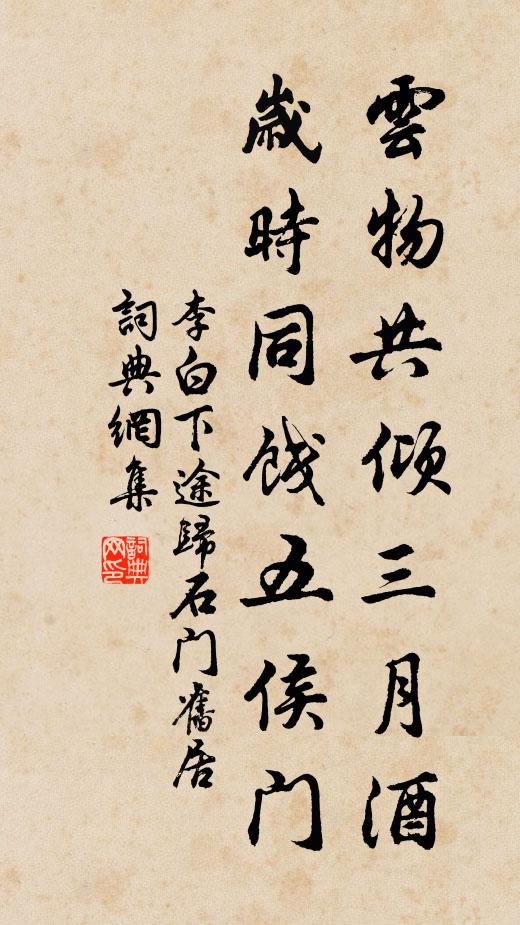 雲物共傾三月酒
歲時同餞五侯門
李白下途歸石門舊居
詞典網集
詞典網印